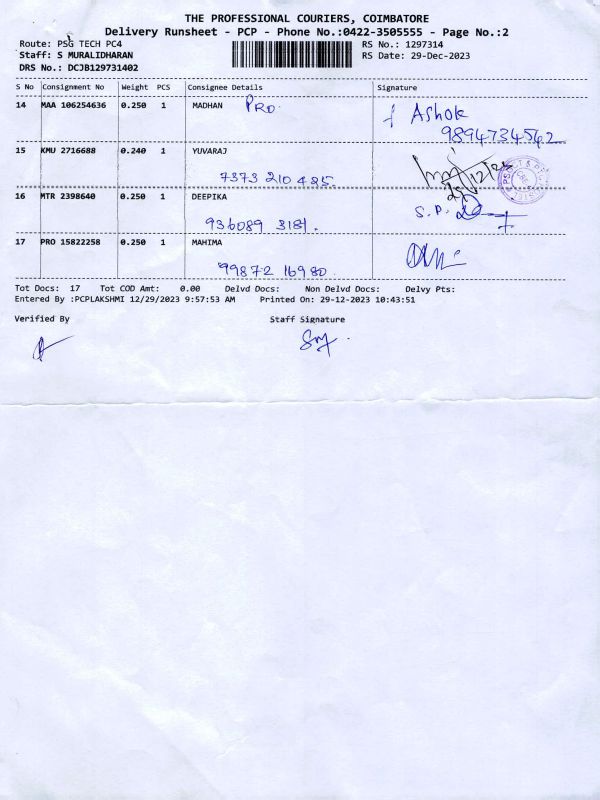 THE PROFESSIONAL COURIERS, COIMBATORE
Delivery Runsheet - PCP - Phone No.:0422-3505555 - Page No.:2
Route: PSG TECH PC4 RS No.: 1297314
Staff: S MURALIDHARAN RS Date: 29-Dec-2023
DRS No.: DCJB129731402
S No Consignment No Weight PCS Consignee Details Signature
14 MAA 106254636 0.250 1 MADHAN PRO. Ashok
9894734542
15 KMU 2716688 0.240 1 YUVARAJ
7373 210 425.
16 MTR 2398640 0.250 1 DEEPIKA S.P.
936089 3181.
17 PRO 15822258 0.250 1 MAHIMA
99872 16980
Tot Docs: 17 Tot COD Amt: 0.00 Delvd Docs: Non Delvd Docs: Delvy Pts:
Entered By :PCPLAKSHMI 12/29/2023 9:57:53 AM Printed On: 29-12-2023 10:43:51
Verified By Staff Signature